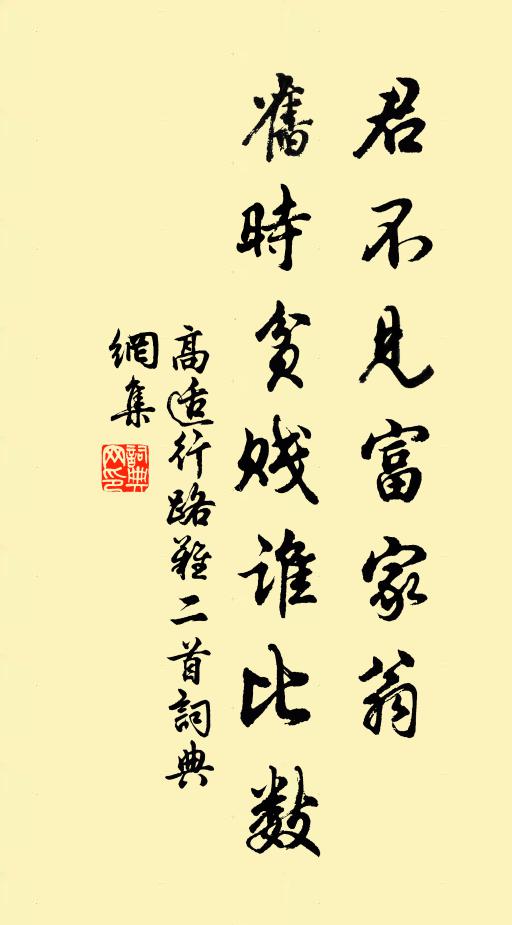 君不見富家翁
舊時貧賤誰比數
高適行路難二首詞典
網集
詞典
网印